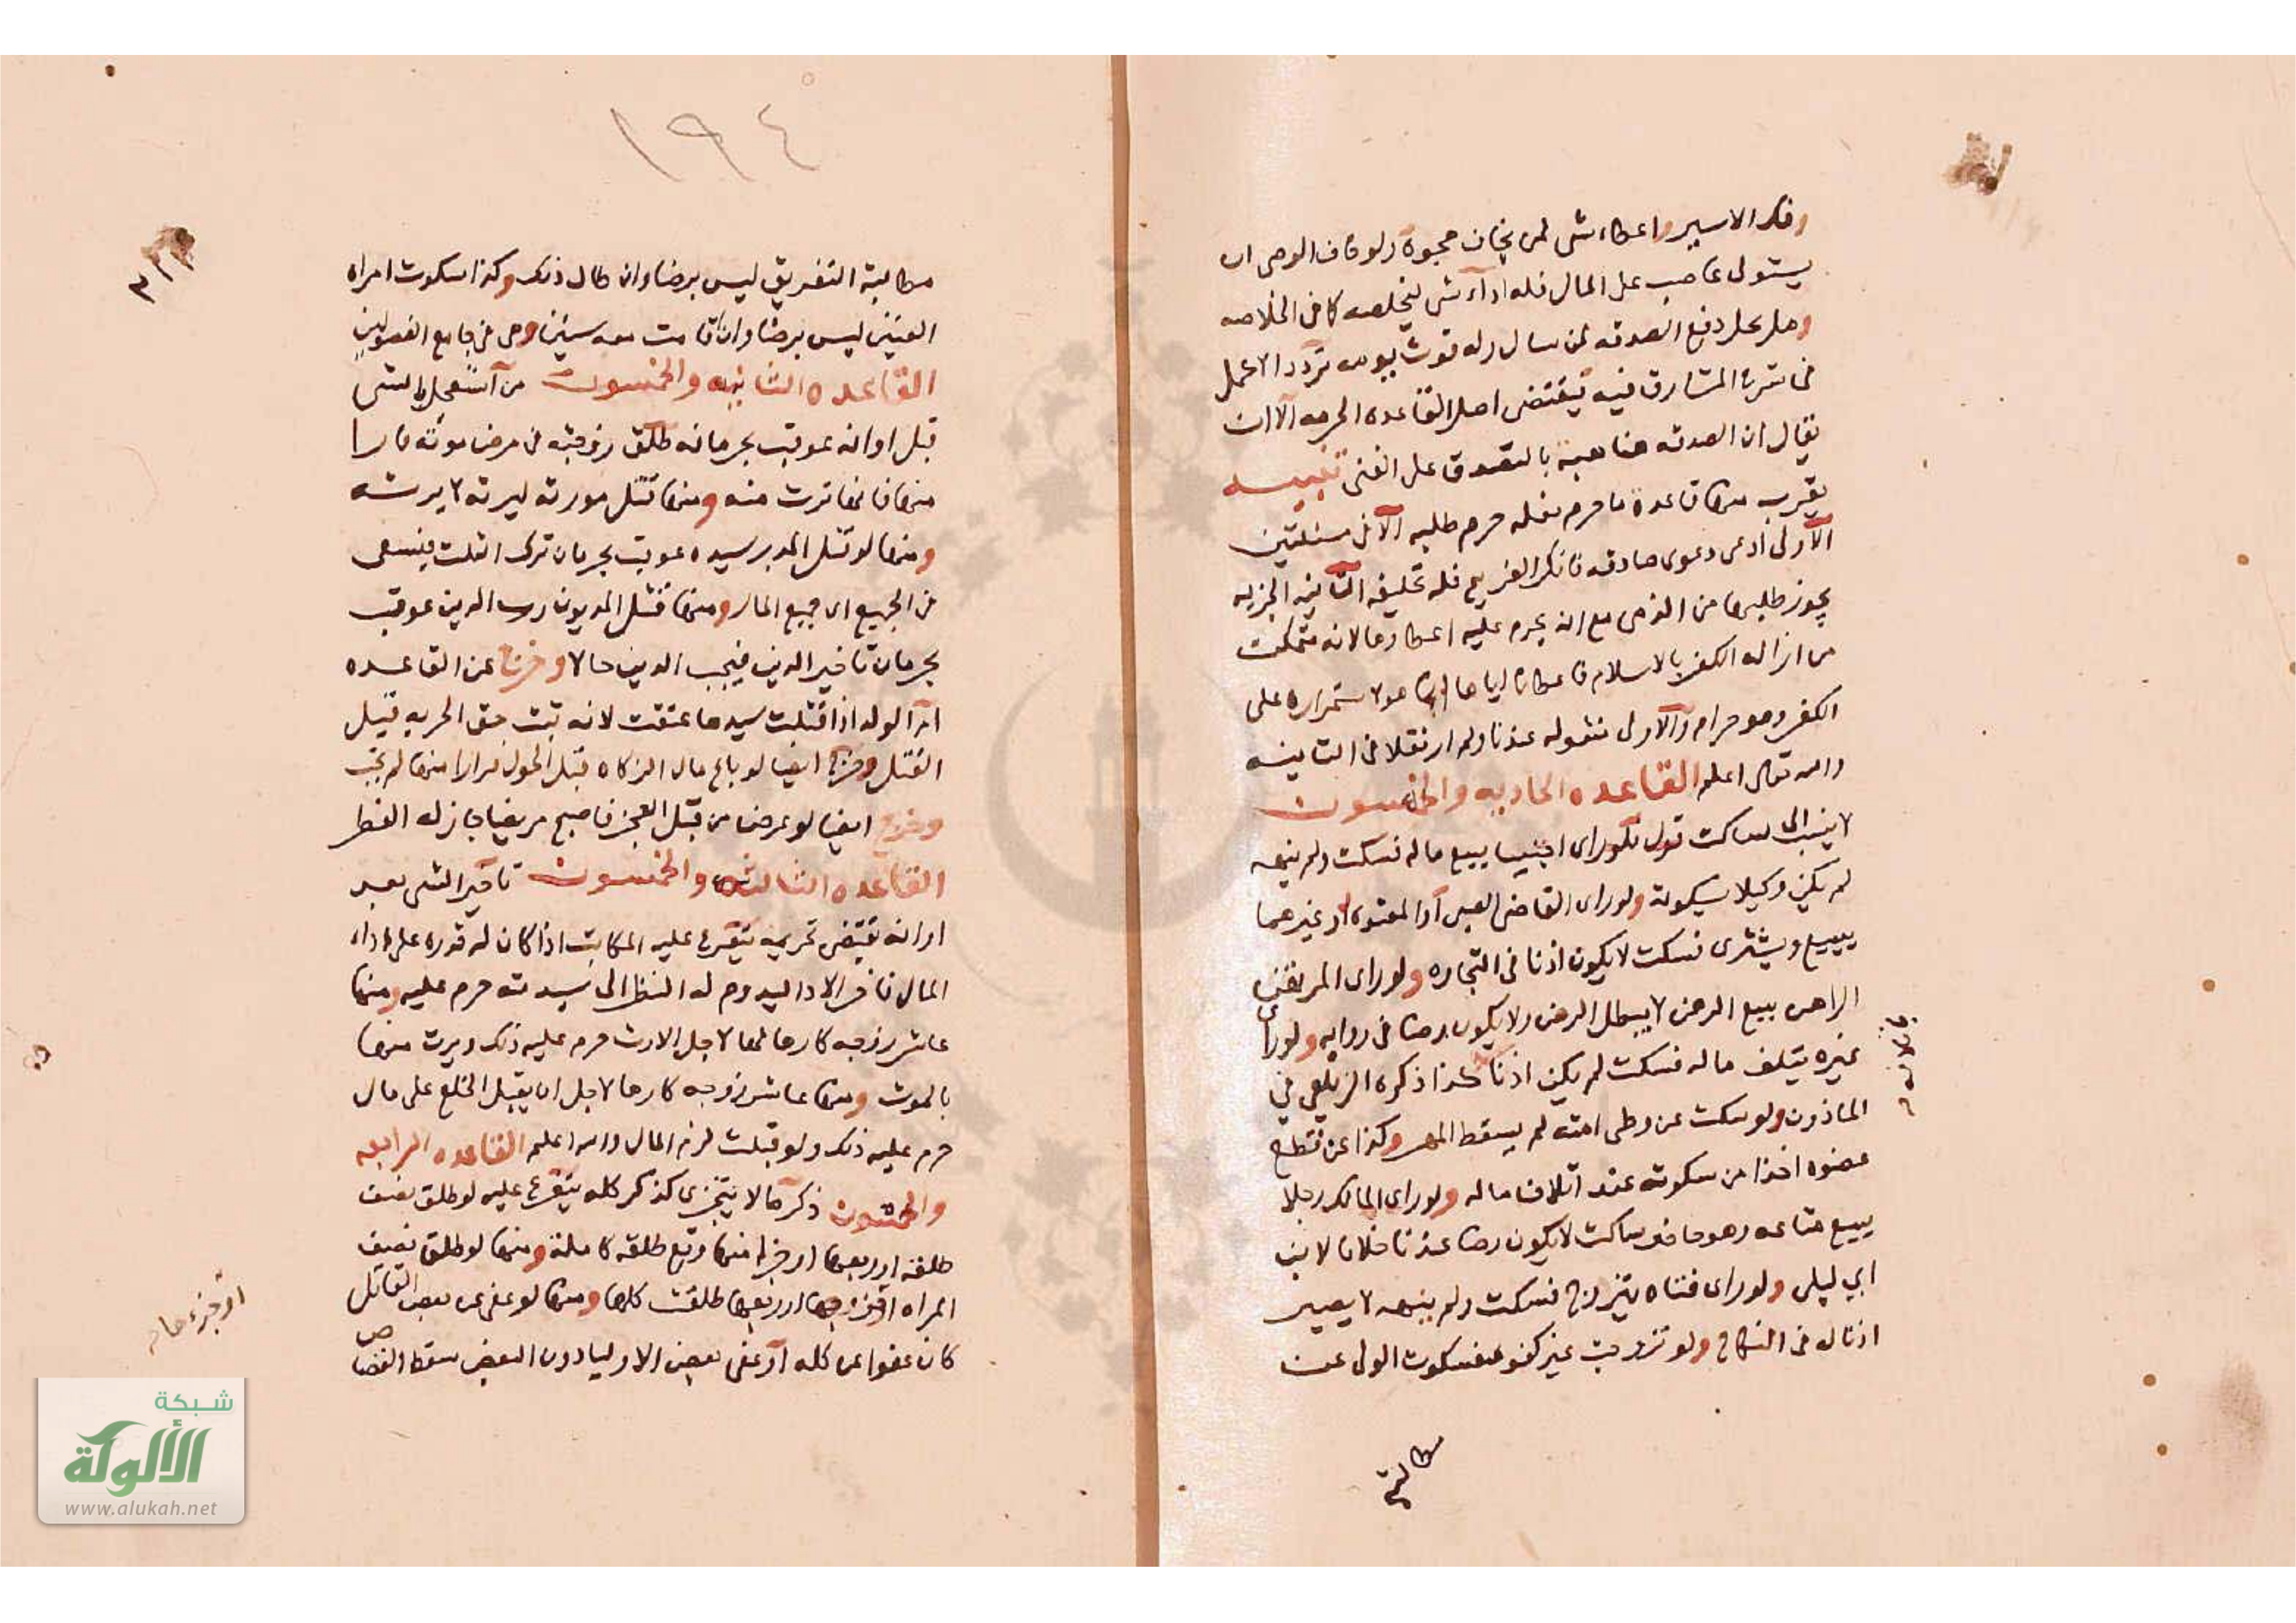 وفكر الاسير واعطاء شى لمن يخاف هجوه ولو خاف الوصى ان
يستولى غاصب على المال فله اداء شى ليخلصه كما فى الخلاصه
وهل يحل دفع الصدقه لمن سال وله قوت يومه تردد الاكمل
فى شرح المشارق فيه يقتضى اصل القاعده الحرمه الا ان
يقال ان الصدقه هنا هبة بالتصدق على الغنى تنبيــه
يقرب منها قاعدة ما حرم فعله حرم طلبه الا فى مسئلتين
الاولى ادعى دعوى صادقه فانكر الغريم فله تحليفه الثانيه الجزيه
يجوز طلبها من الذمى مع انه يحرم عليه اعطاؤها لانه متمكن
من ازاله الكفر بالاسلام فاعطاؤه اياها انما هو لاستمراره على
الكفر وهو حرام والاولى منقوله عندنا ولم ار نقلا فى الثانيه
والله تعالى اعلم القاعده الحاديه والخمسون
لا ينسب الى ساكت قول فلو راى اجنبيا يبيع ماله فسكت ولم ينهه
لم يكن وكيلا بسكوته ولو راى القاضى الصبى او المعتوه او غيرهما
يبيع ويشترى فسكت لا يكون اذنا فى التجاره ولو راى المرتهن
الراهن يبيع الرهن لا يبطل الرهن ولا يكون رضا فى روايه ولو راى
غيره يتلف ماله فسكت لم يكن اذنا كذا ذكره الزيلعى فى
الماذون ولو سكت عن وطى امته لم يسقط المهر وكذا عن قطع
عضوه اخذا من سكوته عند اتلاف ماله ولو راى المالك رجلا
يبيع متاعه وهو حاضر ساكت لا يكون رضا عندنا خلافا لابن
ابي ليلى ولو راى قناه يتزوج فسكت ولم ينهه لا يصير
اذنا له فى النكاح ولو تزوجت غير كفو فسكوت الولى عن
مطالبة
١٩٤
مطالبة التفريق ليس برضا وان طال ذلك وكذا سكوت امراه
العنين ليس برضا وان اقامت معه سنين وهى فى جامع الفصولين
القاعده الثانيه والخمسون من استعجل الشى
قبل اوانه عوقب بحرمانه طلق زوجته فى مرض موته فارا
منها فانها ترث منه ومنها قتل مورثه ليرثه لا يرثه
ومنها لو قتل المدبر سيده عوقب بحرمان ترك الثلث فيسعى
فى الجميع اى جميع المال ومنها قتل المديون رب الدين عوقب
بحرمان تاخير الدين فيجب الدين حالا وخرج عن القاعده
ام الولد اذا قتلت سيدها عتقت لانه ثبت حق الحريه قبل
القتل وخرج ايضا لو باع مال الزكاه قبل الحول فرارا منها لم تجب
وخرج ايضا لو مرض من قبل الفجر فاصبح مريضا جاز له الفطر
القاعده الثالثه والخمسون تاخير الشى بعد
اوانه يقتضى تحريمه يتفرع عليه المكاتب اذا كان له قدره على اداء
المال فاخر الادا ليدوم له النظر الى سيدته حرم عليه ومنها
عاشر زوجه كارها لها لاجل الارث حرم عليه ذلك ويرث منها
بالموت ومنها عاشر زوجه كارها لاجل ان يقبل الخلع على مال
حرم عليه ذلك ولو قبلت لزم المال والله اعلم القاعده الرابعه
والخمسون ذكر ما لا يتجزى كذكر كله يتفرع عليه لو طلق نصف
طلقه او ربعها او جزا منها وقع طلقه كامله ومنها لو طلق نصف
المراه او ربعها طلقت كلها ومنها لو عفى عن بعض القاتل
كان عفوا عن كله او عفى بعض الاوليا دون البعض سقط القصاص
شبكة
الألوكة
www.alukah.net